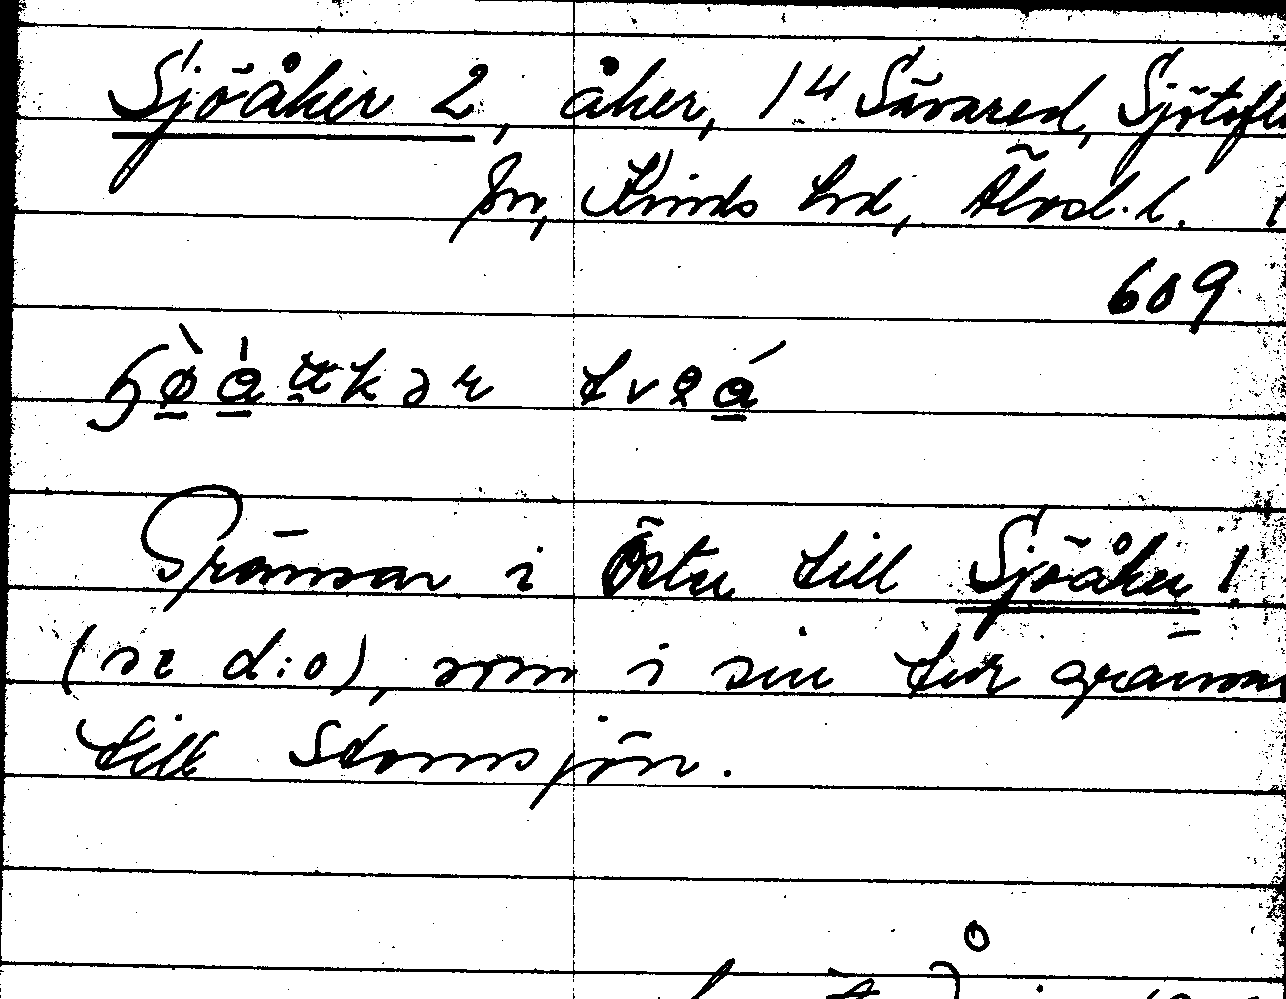 Sjöåker 2, åker, 14 Sävared, Sjötofta
sn, Kinds hd, Älvsb. l.
609
Gränsar i Öster till Sjöåker 1
(se d:o), som i sin tur gränsar
till Stomsjön.